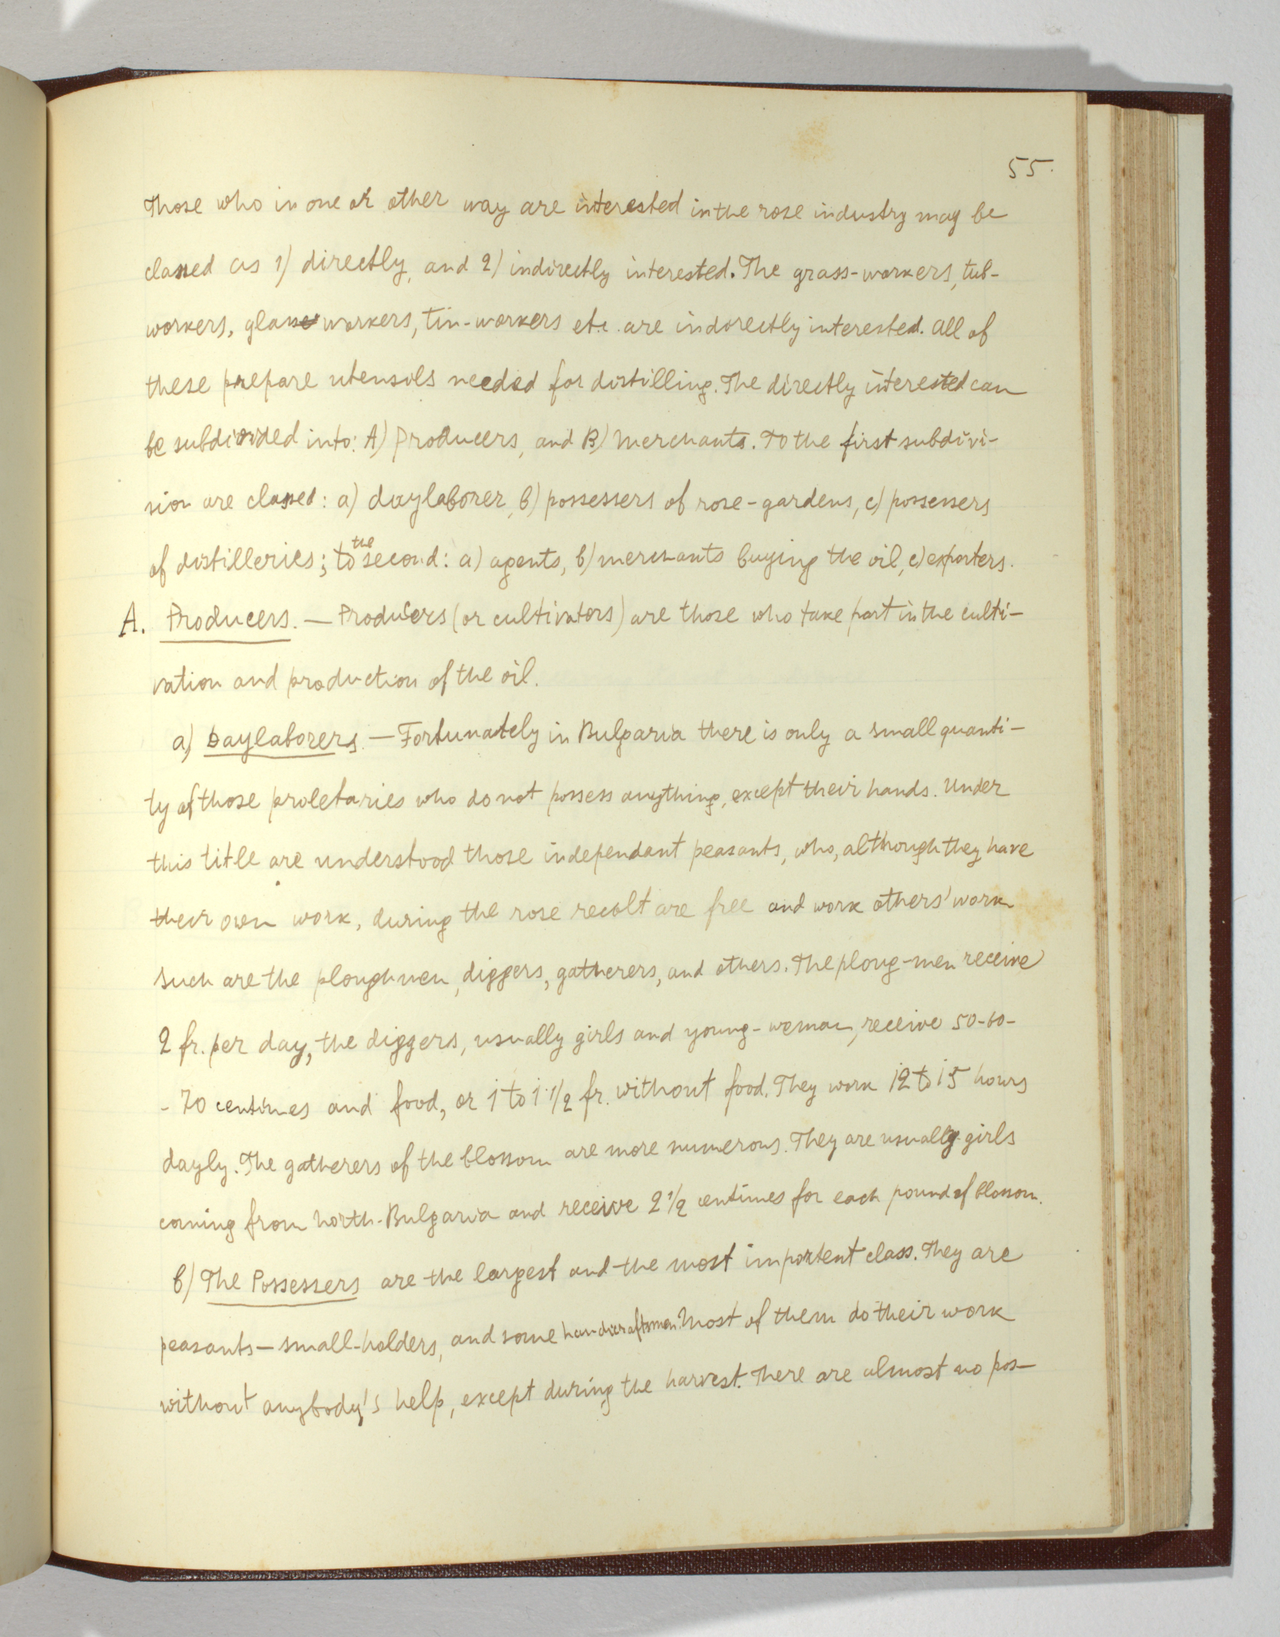 55.
Those who in one or other way are interested in the rose industry may be
classed as 1) directly, and 2) indirectly interested. The grass-workers, tub-
workers, glass workers, tin-workers etc. are indirectly interested. All of
these prepare utensils needed for distilling. The directly interested can
be subdivided into: A) Producers, and B) Merchants. To the first subdivi-
sion are classed: a) daylaborer, b) possessers of rose-gardens, c) possessers
of distilleries; to the second: a) agents, b) merchants buying the oil, c) exporters.
A. Producers. — Producers (or cultivators) are those who take part in the culti-
vation and production of the oil.
a) Daylaborers. — Fortunately in Bulgaria there is only a small quanti-
ty of those proletaries who do not possess anything, except their hands. Under
this title are understood those independant peasants, who, although they have
their own work, during the rose recolt are free and work others' work
such are the ploughmen, diggers, gatherers, and others. The ploug-men receive
2 fr. per day, the diggers, usually girls and young-weman, receive 50-60-
- 70 centimes and food, or 1 to 1 1/2 fr. without food. They work 12 to 15 hours
dayly. The gatherers of the blossom are more numerous. They are usually girls
coming from North-Bulgaria and receive 2 1/2 centimes for each pound of blossom.
b) The Possessers are the largest and the most importent class. They are
peasants — small-holders, and some handicraftsmen. Most of them do their work
without anybody's help, except during the harvest. There are almost no pos-